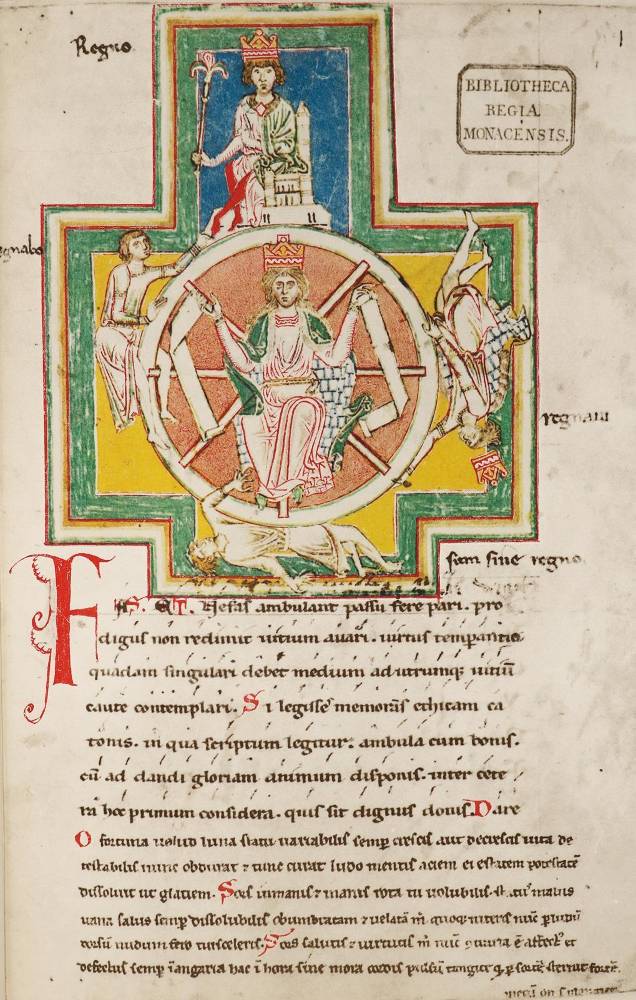 Regno
BIBLIOTHECA
REGIA
MONACENSIS.
regnabo
regnaui
sum sine regno
Fas et Nefas ambulant passu fere pari. pro
digus non redimit uitium auari. uirtus temperantia
quadam singulari debet medium ad utrumq; uitiū
caute contemplari. Si legisse memoras ethicam ca
tonis. in qua scriptum legitur. ambula cum bonis.
cū ad dandi gloriam animum disponis. inter cete
ra hoc primum considera. quis sit dignus donis. Dare
O fortuna uelud luna statu uariabilis semp crescis aut decrescis uita de
testabilis nunc obdurat ⁊ tunc curat ludo mentis aciem egestatem potestatē
dissoluit ut glatiem. Sors inmanis ⁊ inanis rota tu uolubilis status malus
uana salus semp dissolubilis obumbratam ⁊ uelatā m quoq; niteris nūc p ludū
dorsū nudum fero tui sceleris. Sors salutis ⁊ uirtutis m nūc contraria ē affect et
defectus semp ī angaria hac ī hora sine mora cordis pulsū tangite